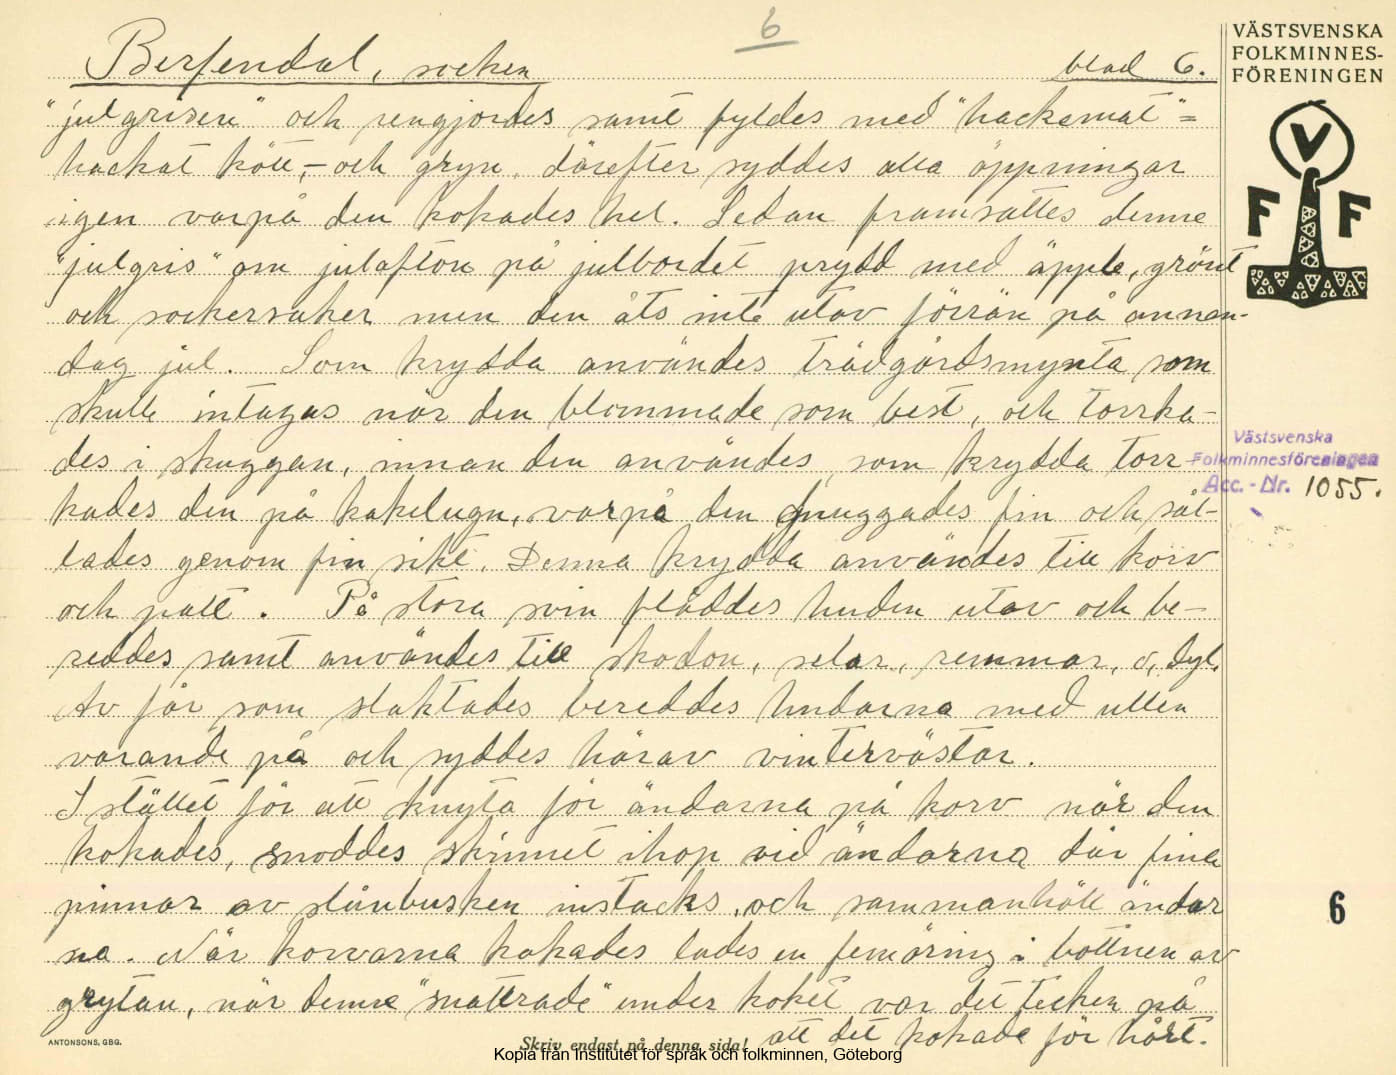 6
Berfendal, socken blad 6.
"julgrisen" och rengjordes samt fyldes med "hackemat" =
hackat kött, – och gryn, därefter syddes alla öppningar
igen varpå den kokades hel. Sedan framsattes denne
"julgris" om julafton på julbordet prydd med äpple, grönt
och sockersaker men den åts inte utav förrän på annan-
dag jul. Som krydda användes trädgårdsmynta som
skulle intagas när den blommade som best, och torrka-
des i skuggan, innan den användes som krydda torr-
kades den på kakelugn, varpå den gnuggades fin och sål-
lades genom fin sikt. Denna krydda användes till korv
och palt. På stora svin flåddes huden utav och be-
reddes samt användes till skodon, selar, remmar, o, dyl.
Av får som slaktades bereddes hudarna med ullen
varande på och syddes härav vintervästar.
I stället för att knyta för ändarna på korv när den
kokades, snoddes skinnet ihop vid ändarna där fina
pinnar av slånbusken instacks, och sammanhöll ändar
na. När korvarna kokades lades en femöring i bottnen av
grytan, när denne "snattrade" under koket var det tecken på
att det kokade för hårt.
VÄSTSVENSKA
FOLKMINNES-
FÖRENINGEN
V
F F
Västsvenska
Folkminnesföreningen
Acc. - Nr. 1055.
6
ANTONSONS, GBG.
Skriv endast på denna sida!
Kopia från Institutet för språk och folkminnen, Göteborg